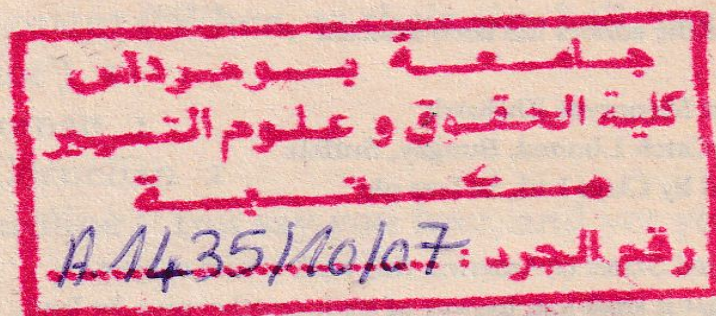 جامعة بومرداس
كلية الحقوق و علوم التسيير
مكتبة
رقم الجرد : A 1435/10/07